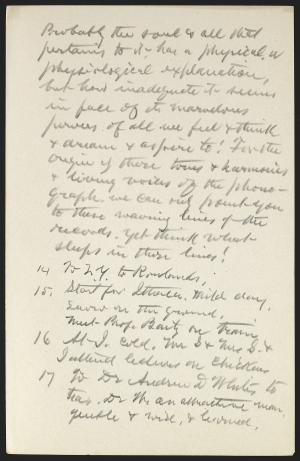 Probably the soul & all that
pertains to it, has a physical, a
physiological explanation,
but how inadequate it seems
in face of its marvelous
powers, of all we feel & think
& dream & aspire to! For the
origin of those tones & harmonies
& living voices of the phono-
graph, we can only point you
to these waving lines of the
records. Yet think what
sleeps in those lines!
14 To N.Y. to Rowlands,
15. Start for Ithaca, mild day,
snow on the ground,
meet Prof. on train
16 At I. cold, Mr & Mrs &
I attend lecture on Chickens
17 To Dr Andrew D White's to
tea. Dr W. an attractive man,
gentle & wise, & learned.